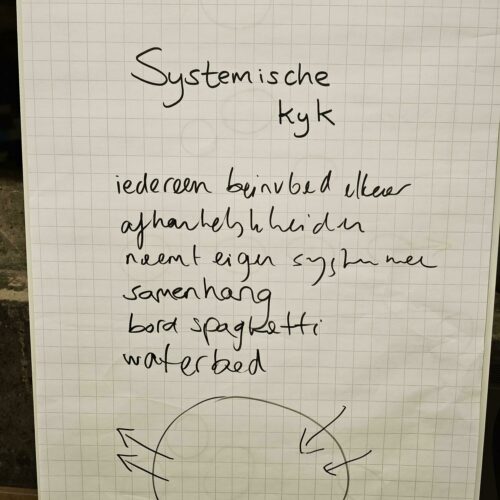 Systemische
kyk
iedereen beinvbed elkeer
afhankelijkheiden
neemt eigen systeem mee
samenhang
bord spaghetti
waterbed